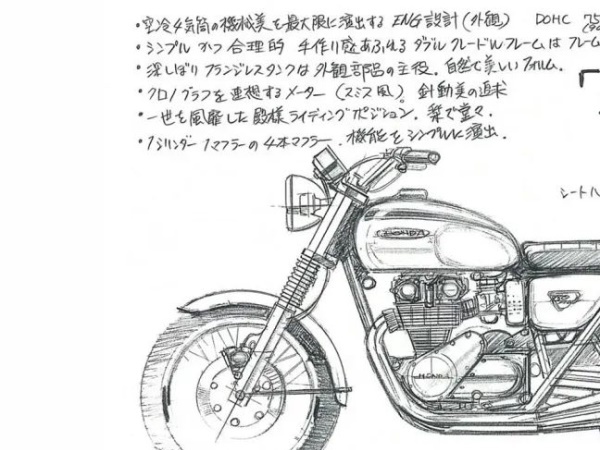 ・空冷4気筒の機械美を最大限に演出する ENG設計(外観) DOHC 75
・シンプル かつ 合理的 手作り感あふれる ダブルクレードルフレームは フレーム
・深しぼりフランジレスタンクは外観部品の主役。自然で美しいフォルム。
・クロノグラフを連想するメーター (スミス風)。針動美の追求
・一世を風靡した殿様ライディングポジション。楽で堂々。
・1シリンダー1マフラーの4本マフラー。機能をシンプルに演出。
シート
HONDA